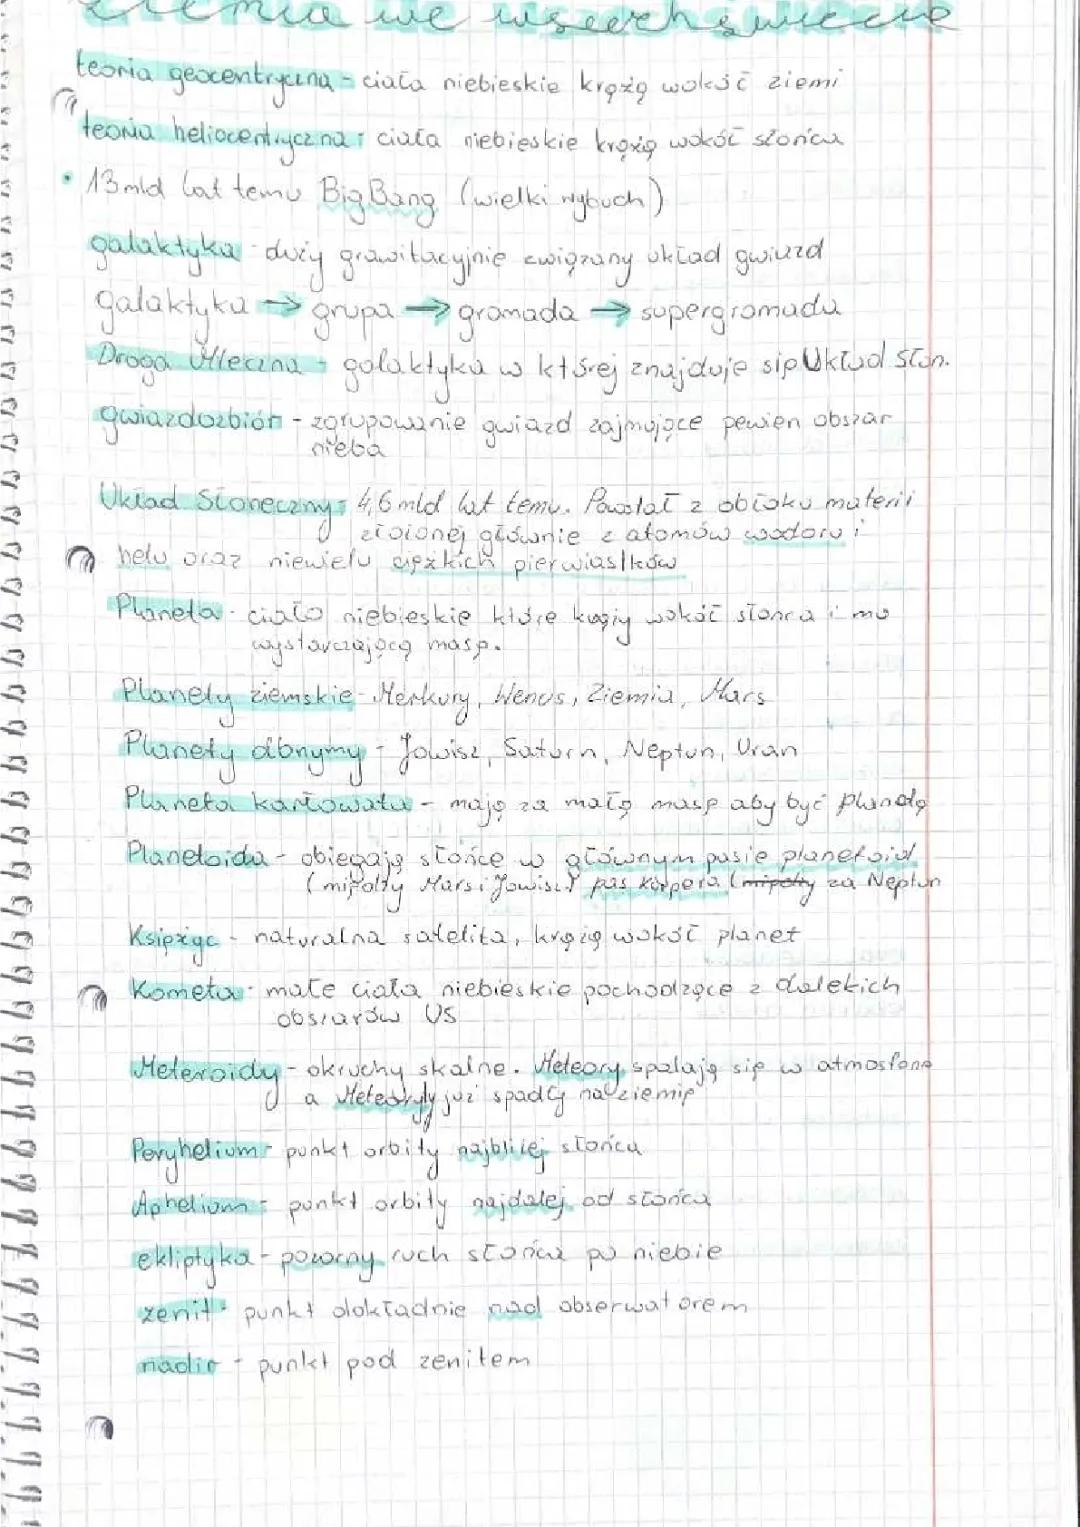 Ziemia we wszechświecie
teoria geocentryczna - ciała niebieskie krążą wokół ziemi
teoria heliocentryczna: ciała niebieskie krążą wokół słońca
• 13 mld lat temu Big Bang (wielki wybuch)
galaktyka - duży grawitacyjnie związany układ gwiazd
galaktyka → grupa → gromada → supergromada
Droga Mleczna - galaktyka w której znajduje się Układ Słon.
gwiazdozbiór - zgrupowanie gwiazd zajmujące pewien obszar
nieba
Układ Słoneczny - 4,6 mld lat temu. Powstał z obłoku materii
złożonej głównie z atomów wodoru i
helu oraz niewielu ciężkich pierwiastków
Planeta - ciało niebieskie które krąży wokół słońca i ma
wystarczającą masę.
Planety ziemskie - Merkury, Wenus, Ziemia, Mars
Planety olbrzymy - Jowisz, Saturn, Neptun, Uran
Planeta karłowata - mają za małą masę aby być planetą
Planetoida - obiegają słońce w głównym pasie planetoid
(między Mars i Jowisz) pas Kuipera (między za Neptun
Księżyc - naturalna satelita, krążą wokół planet
Kometa - małe ciała niebieskie pochodzące z dalekich
obszarów US
Meteroidy - okruchy skalne. Meteory spalają się w atmosferze
a Meteoryty już spadły na ziemię
Peryhelium - punkt orbity najbliżej słońca
Aphelium - punkt orbity najdalej od słońca
ekliptyka - pozorny ruch słońca po niebie
zenit - punkt dokładnie nad obserwatorem
nadir - punkt pod zenitem